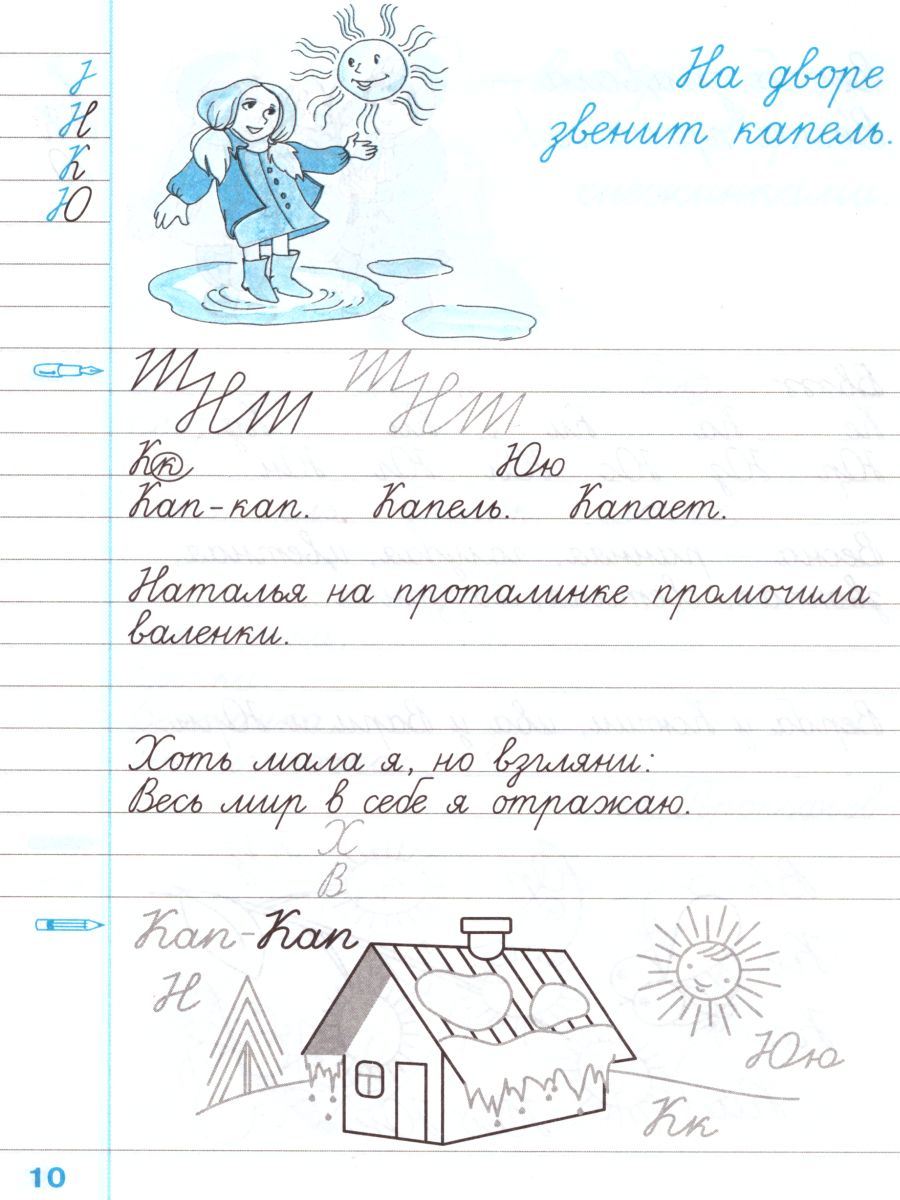 На дворе
звенит капель.
Н
К
Ю
Кк Юю
Кап-кап. Капель. Капает.
Наталья на проталинке промочила
валенки.
Хоть мала я, но взгляни:
Весь мир в себе я отражаю.
Х
В
Кап-Кап
Н
Юю
Кк
10